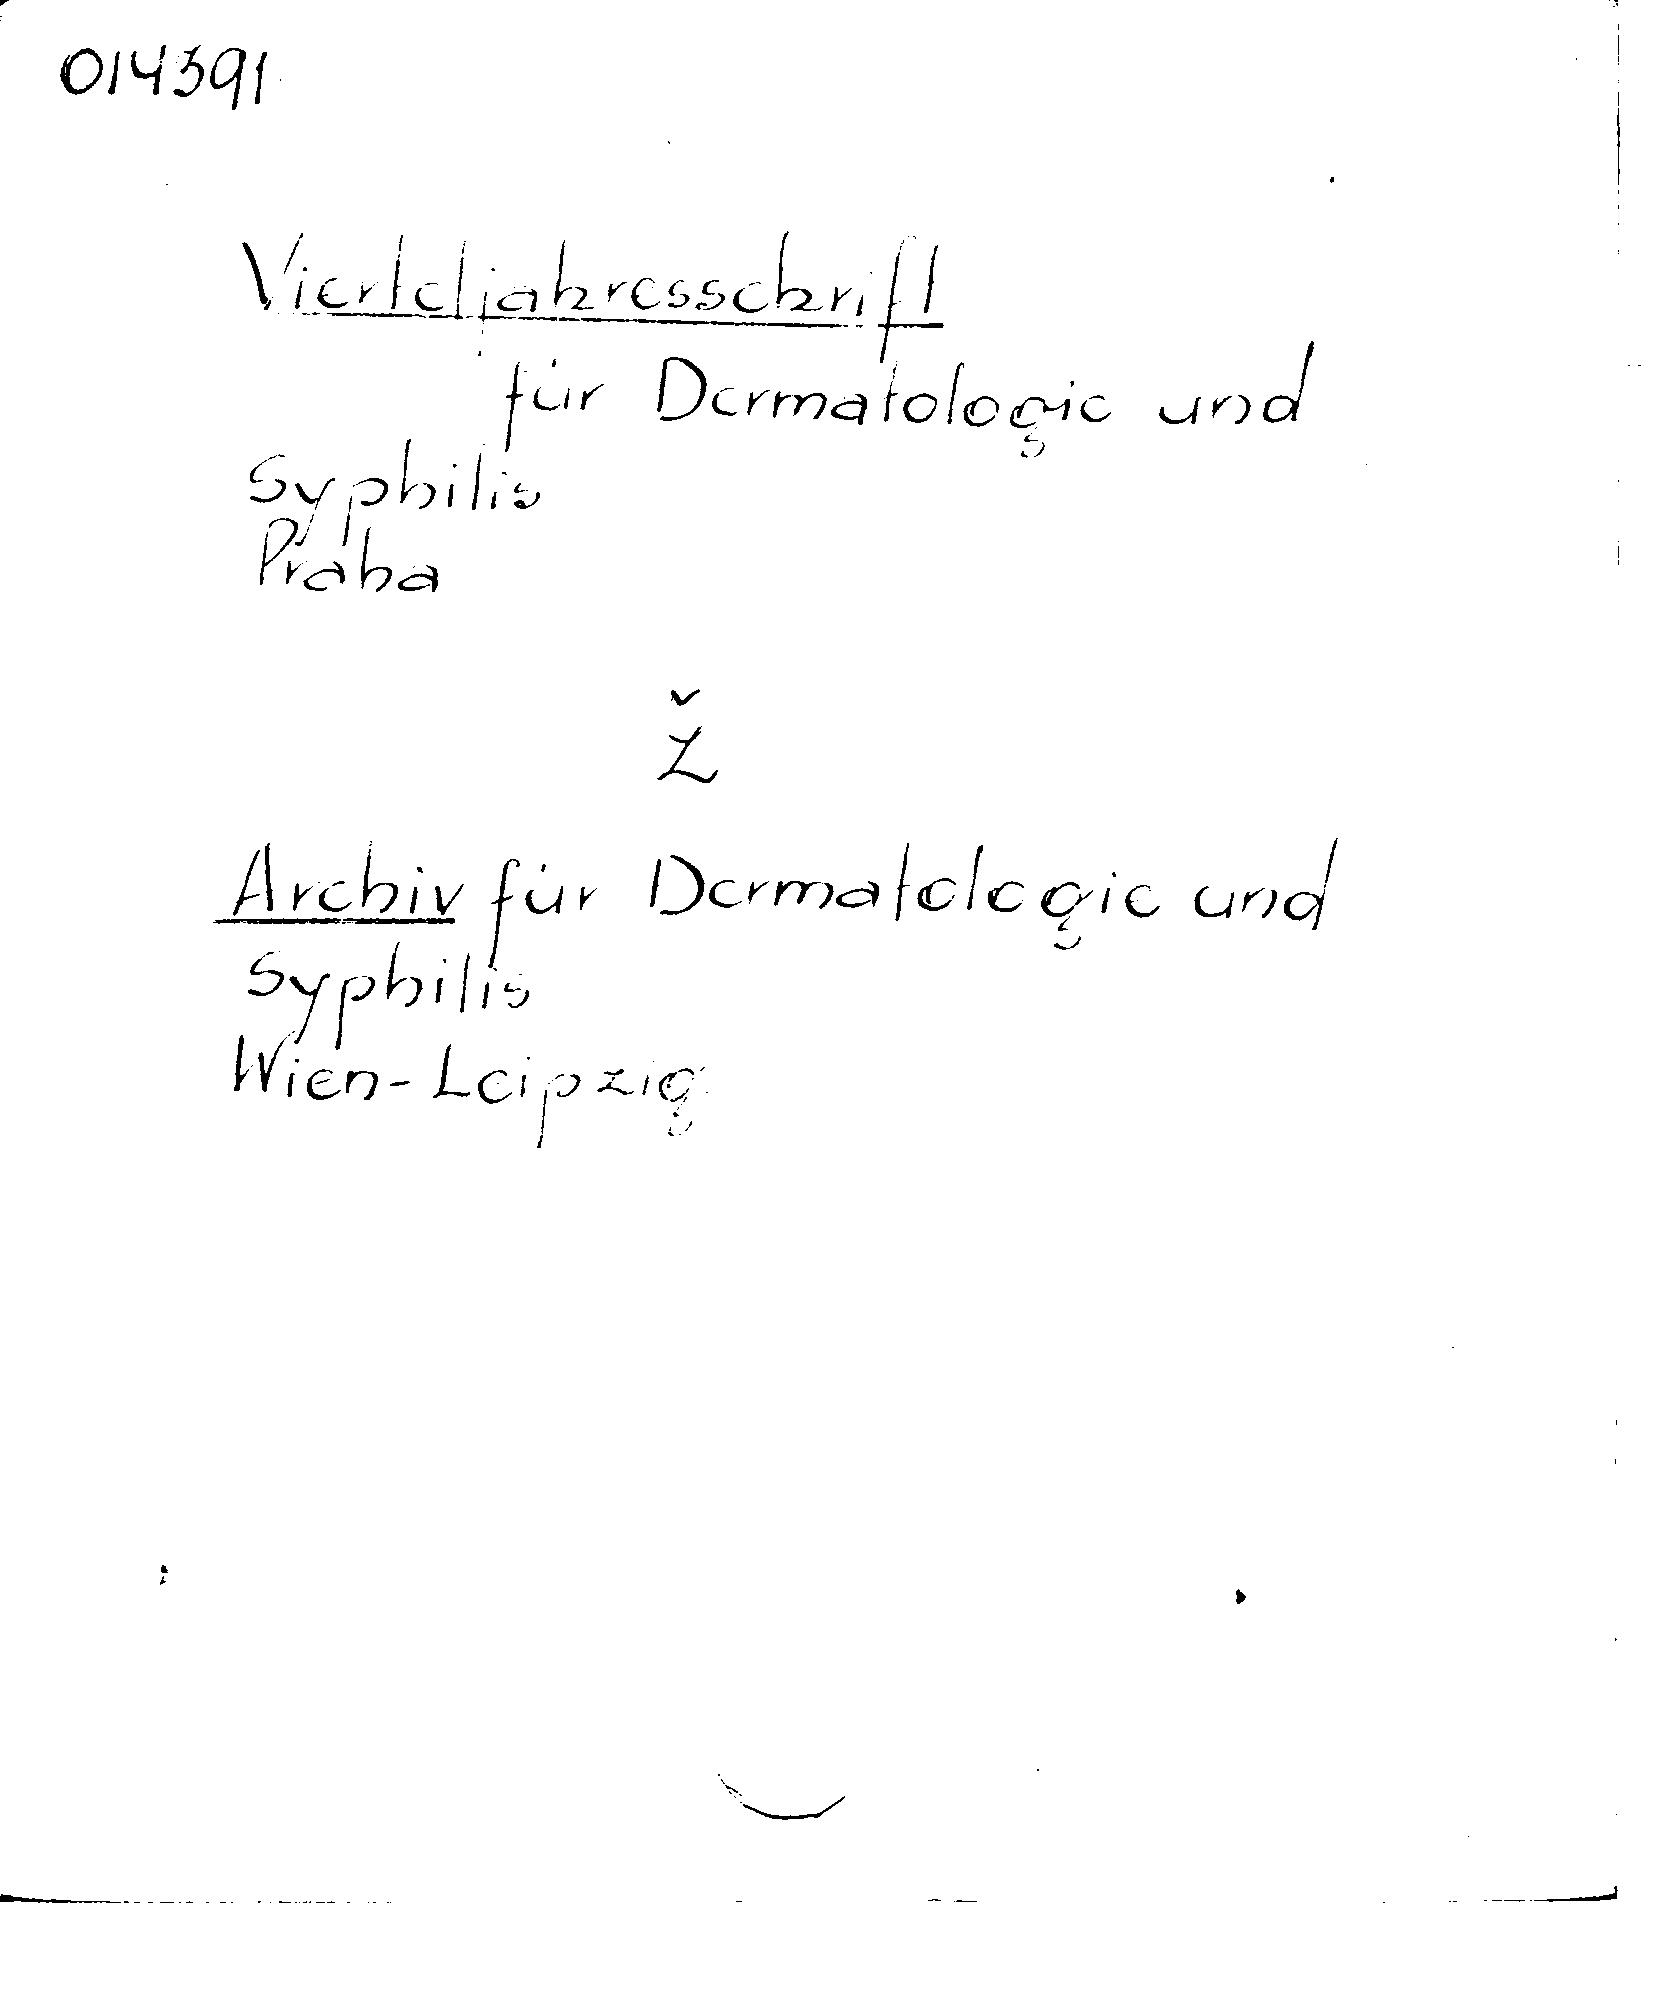 014391
Vierteljahresschrift
für Dermatologie und
Syphilis
Praha
Ž
Archiv für Dermatologie und
Syphilis
Wien-Leipzig